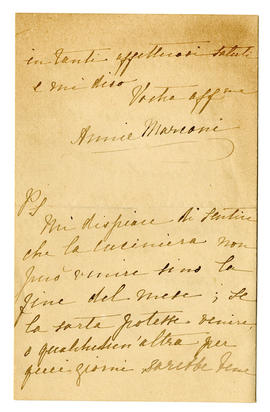 in tanti affettuosi saluti
e mi dico
Vostra aff.ma
Annie Marconi
PS
Mi dispiace di sentire
che la cuciniera non
può venire sino la
fine del mese; se
la sarta potesse venire,
o qualchedun'altra per
quei giorni sarebbe bene